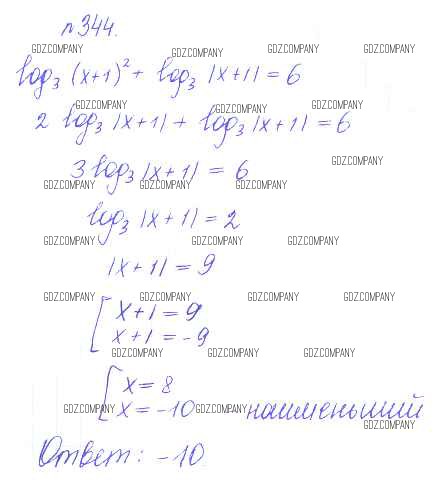 №344.
GDZ.COMPANY GDZ.COMPANY GDZ.COMPANY GDZ.COMPANY
log₃ (x+1)² + log₃ |x+1| = 6
GDZ.COMPANY GDZ.COMPANY GDZ.COMPANY
2 log₃ |x+1| + log₃ |x+1| = 6
GDZ.COMPANY
3 log₃ |x+1| = 6
GDZ.COMPANY GDZ.COMPANY GDZ.COMPANY
log₃ |x+1| = 2
GDZ.COMPANY GDZ.COMPANY GDZ.COMPANY
|x+1| = 9
GDZ.COMPANY GDZ.COMPANY GDZ.COMPANY GDZ.COMPANY
[ x+1 = 9
x+1 = -9
GDZ.COMPANY GDZ.COMPANY GDZ.COMPANY
[ x = 8
x = -10 наименьший
GDZ.COMPANY GDZ.COMPANY
GDZ.COMPANY
Ответ: -10